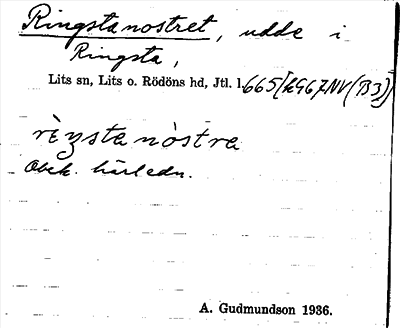 Ringstanostret, udde i
Ringsta,
Lits sn, Lits o. Rödöns hd, Jtl. l.
rìŋstanòstra
Obek. härledn.
A. Gudmundson 1936.